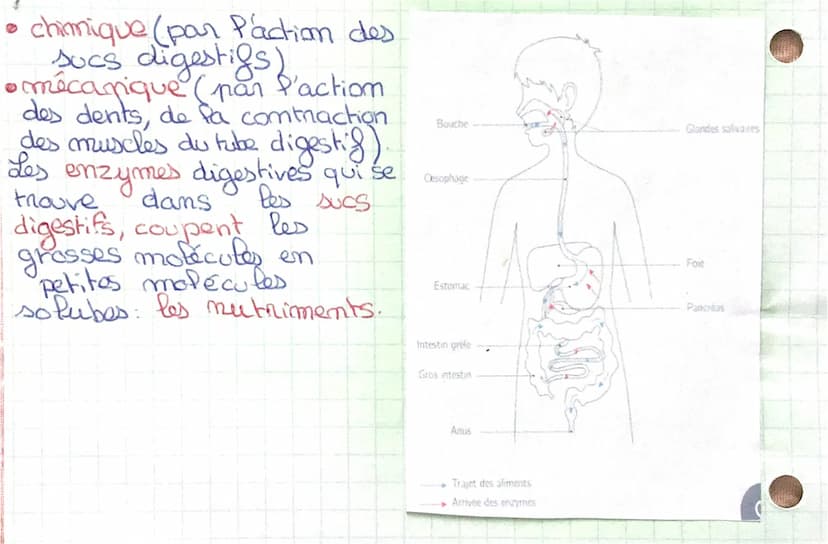 • chimique (par l'action des
sucs digestifs)
• mécanique (par l'action
des dents, de la contraction
des muscles du tube digestif).
Les enzymes digestives qui se
trouve dans les sucs
digestifs, coupent les
grosses molécules en
petites molécules
solubes : les nutriments.
Bouche
Glandes salivaires
Œsophage
Foie
Estomac
Pancréas
Intestin grêle
Gros intestin
Anus
Trajet des aliments
Arrivée des enzymes